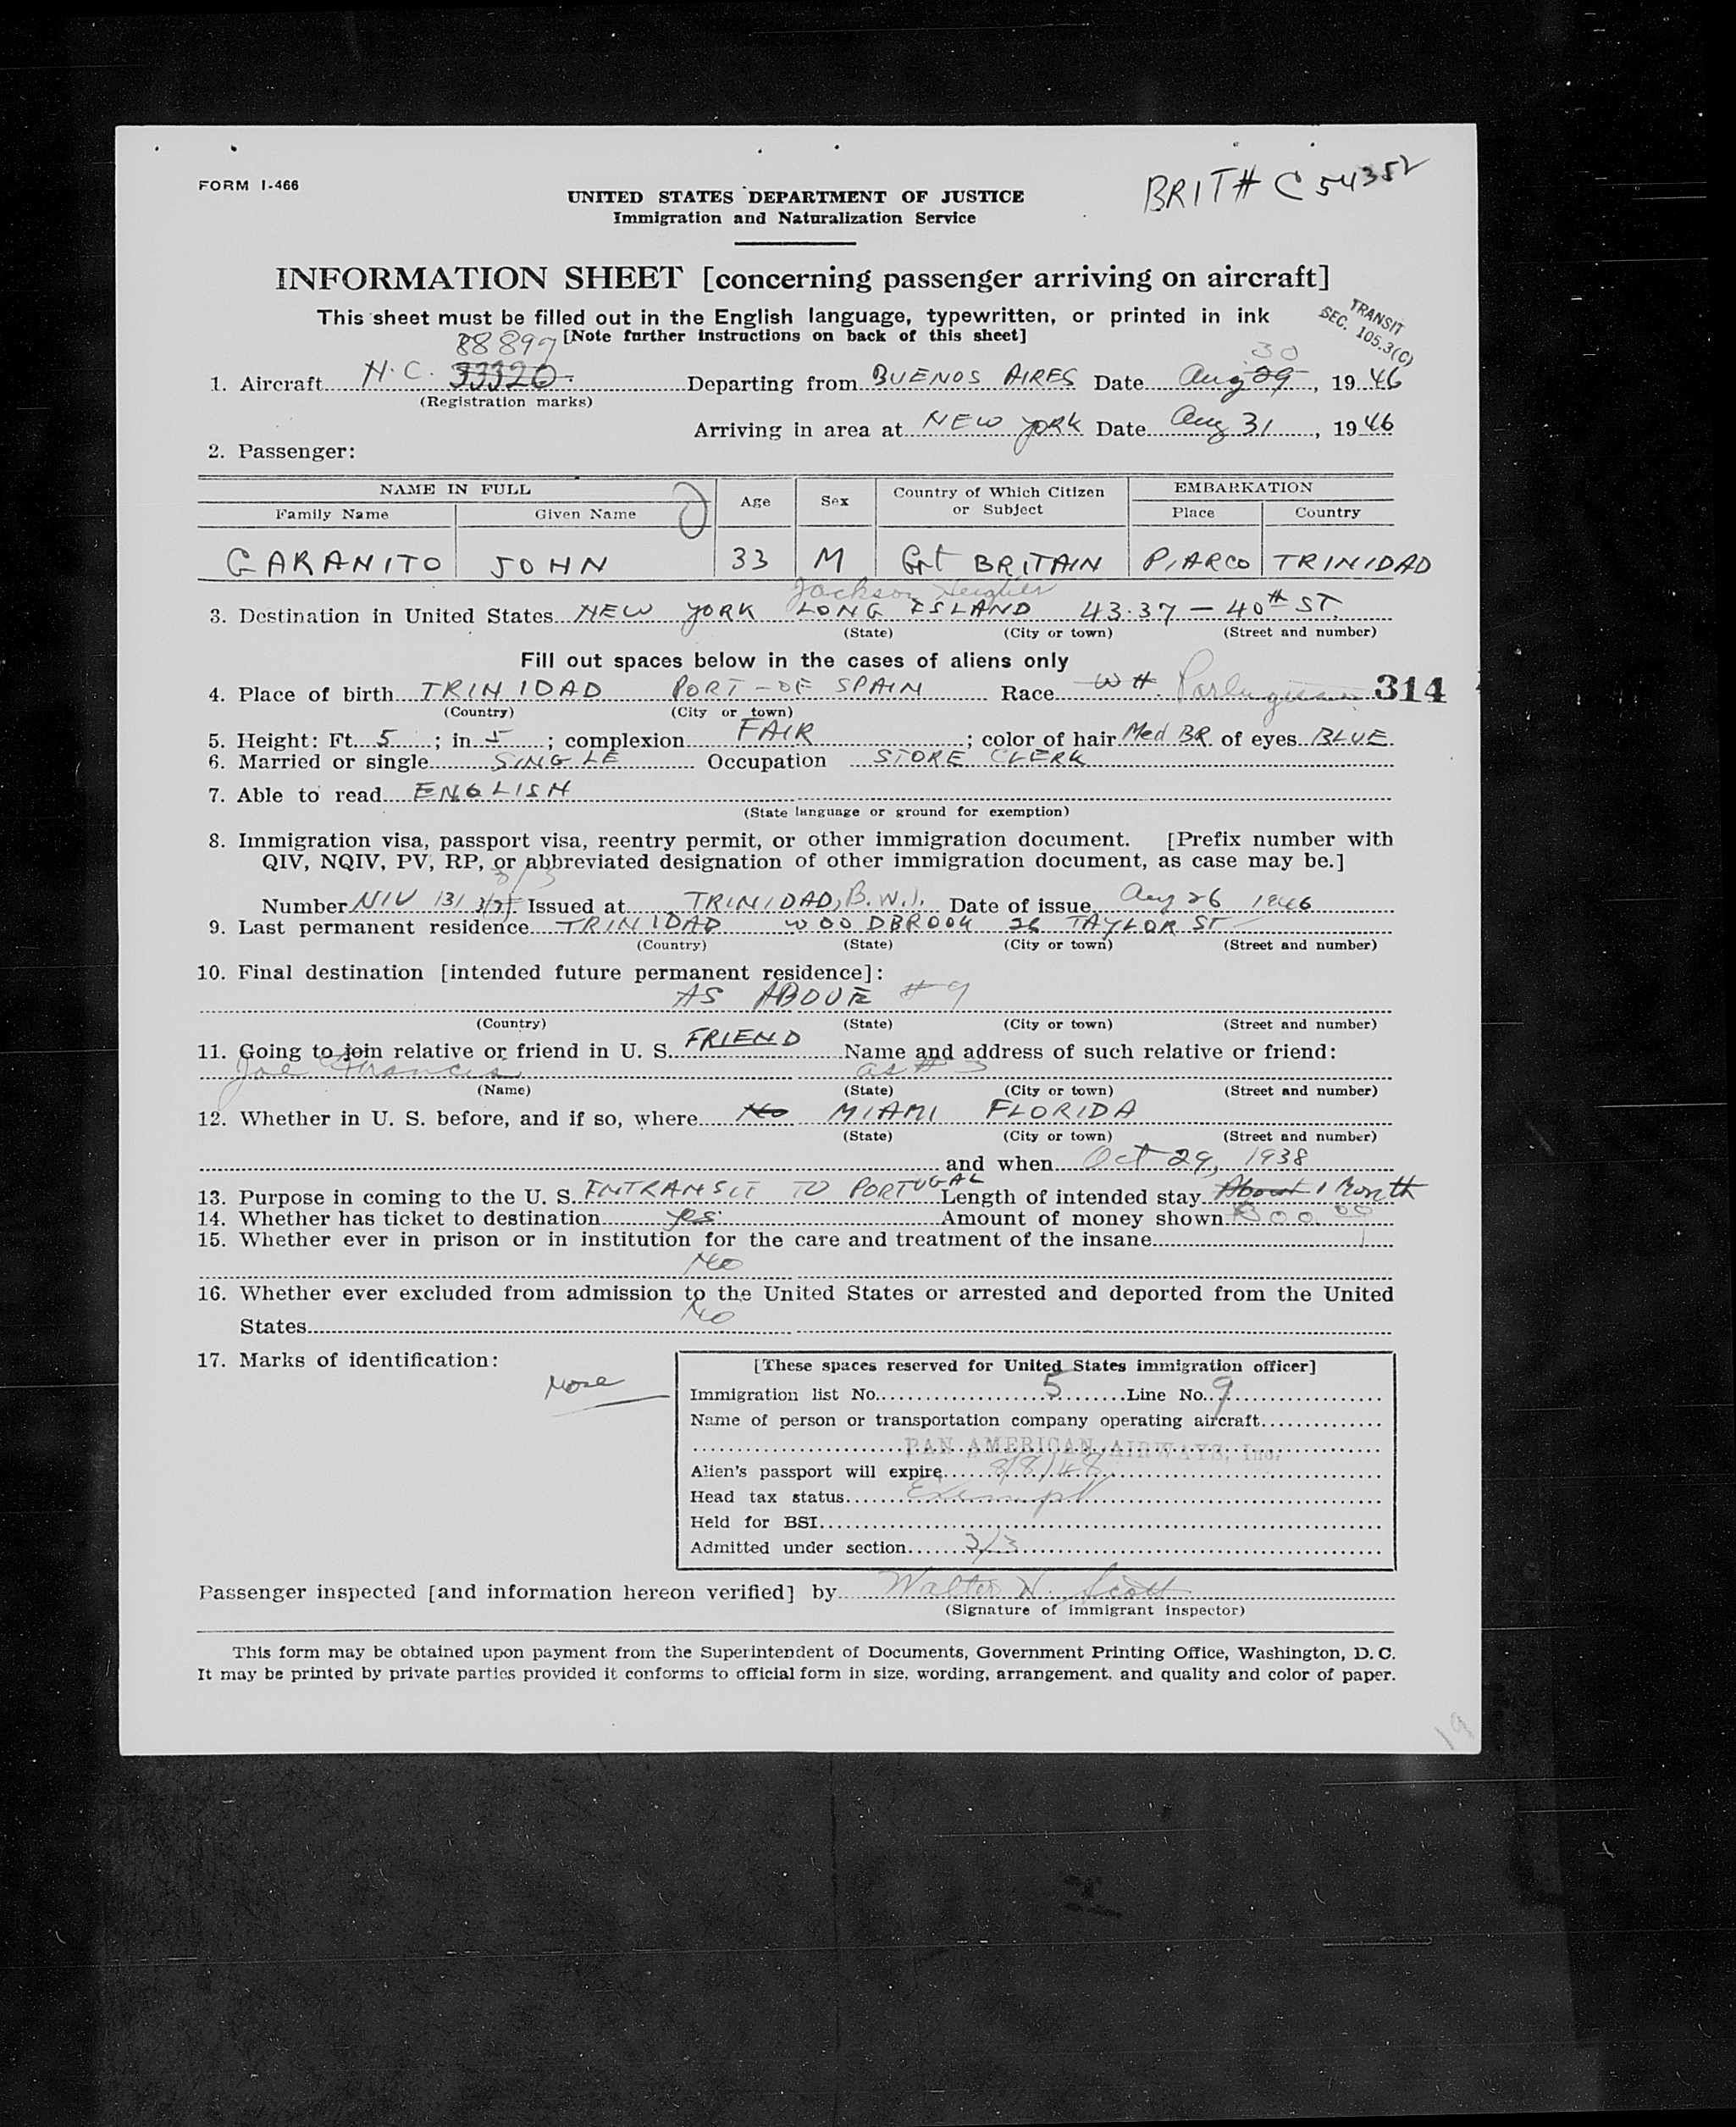 FORM I-466
BRIT# C 54352
UNITED STATES DEPARTMENT OF JUSTICE
Immigration and Naturalization Service
INFORMATION SHEET [concerning passenger arriving on aircraft]
This sheet must be filled out in the English language, typewritten, or printed in ink
[Note further instructions on back of this sheet]
TRANSIT
SEC. 105.3(C)
88899 30
1. Aircraft N.C. 33320. Departing from BUENOS AIRES Date Aug 29, 1946
(Registration marks)
Arriving in area at NEW YORK Date Aug 31, 1946
2. Passenger:
NAME IN FULL Age Sex Country of Which Citizen or Subject EMBARKATION
Family Name Given Name Place Country
GARANITO JOHN 33 M Grt BRITAIN PIARCO TRINIDAD
Jackson Heights
3. Destination in United States NEW YORK LONG ISLAND 43.37 - 40th ST.
(State) (City or town) (Street and number)
Fill out spaces below in the cases of aliens only
4. Place of birth TRINIDAD PORT-OF SPAIN Race WH. 314
(Country) (City or town)
5. Height: Ft. 5; in 5; complexion FAIR; color of hair Med BR. of eyes BLUE
6. Married or single SINGLE Occupation STORE CLERK
7. Able to read ENGLISH
(State language or ground for exemption)
8. Immigration visa, passport visa, reentry permit, or other immigration document. [Prefix number with
QIV, NQIV, PV, RP, or abbreviated designation of other immigration document, as case may be.]
3/3
Number NIV 131 Issued at TRINIDAD, B.W.I. Date of issue Aug 26 1946
9. Last permanent residence TRINIDAD WOODBROOK 26 TAYLOR ST
(Country) (State) (City or town) (Street and number)
10. Final destination [intended future permanent residence]:
AS ABOVE #9
(Country) (State) (City or town) (Street and number)
11. Going to join relative or friend in U. S. FRIEND Name and address of such relative or friend:
Joe Francis as # 3
(Name) (State) (City or town) (Street and number)
12. Whether in U. S. before, and if so, where No MIAMI FLORIDA
(State) (City or town) (Street and number)
and when Oct 29, 1938
13. Purpose in coming to the U. S. INTRANSIT TO PORTUGAL Length of intended stay About 1 Month
14. Whether has ticket to destination yes. Amount of money shown
15. Whether ever in prison or in institution for the care and treatment of the insane
No
16. Whether ever excluded from admission to the United States or arrested and deported from the United
States No
17. Marks of identification:
None
[These spaces reserved for United States immigration officer]
Immigration list No. 5 Line No. 9
Name of person or transportation company operating aircraft
PAN AMERICAN AIRWAYS, Inc.
Alien's passport will expire 8/8/48
Head tax status Exempt
Held for BSI
Admitted under section 3/3
Passenger inspected [and information hereon verified] by Walter N. Scott
(Signature of immigrant inspector)
This form may be obtained upon payment from the Superintendent of Documents, Government Printing Office, Washington, D. C.
It may be printed by private parties provided it conforms to official form in size, wording, arrangement, and quality and color of paper.
19